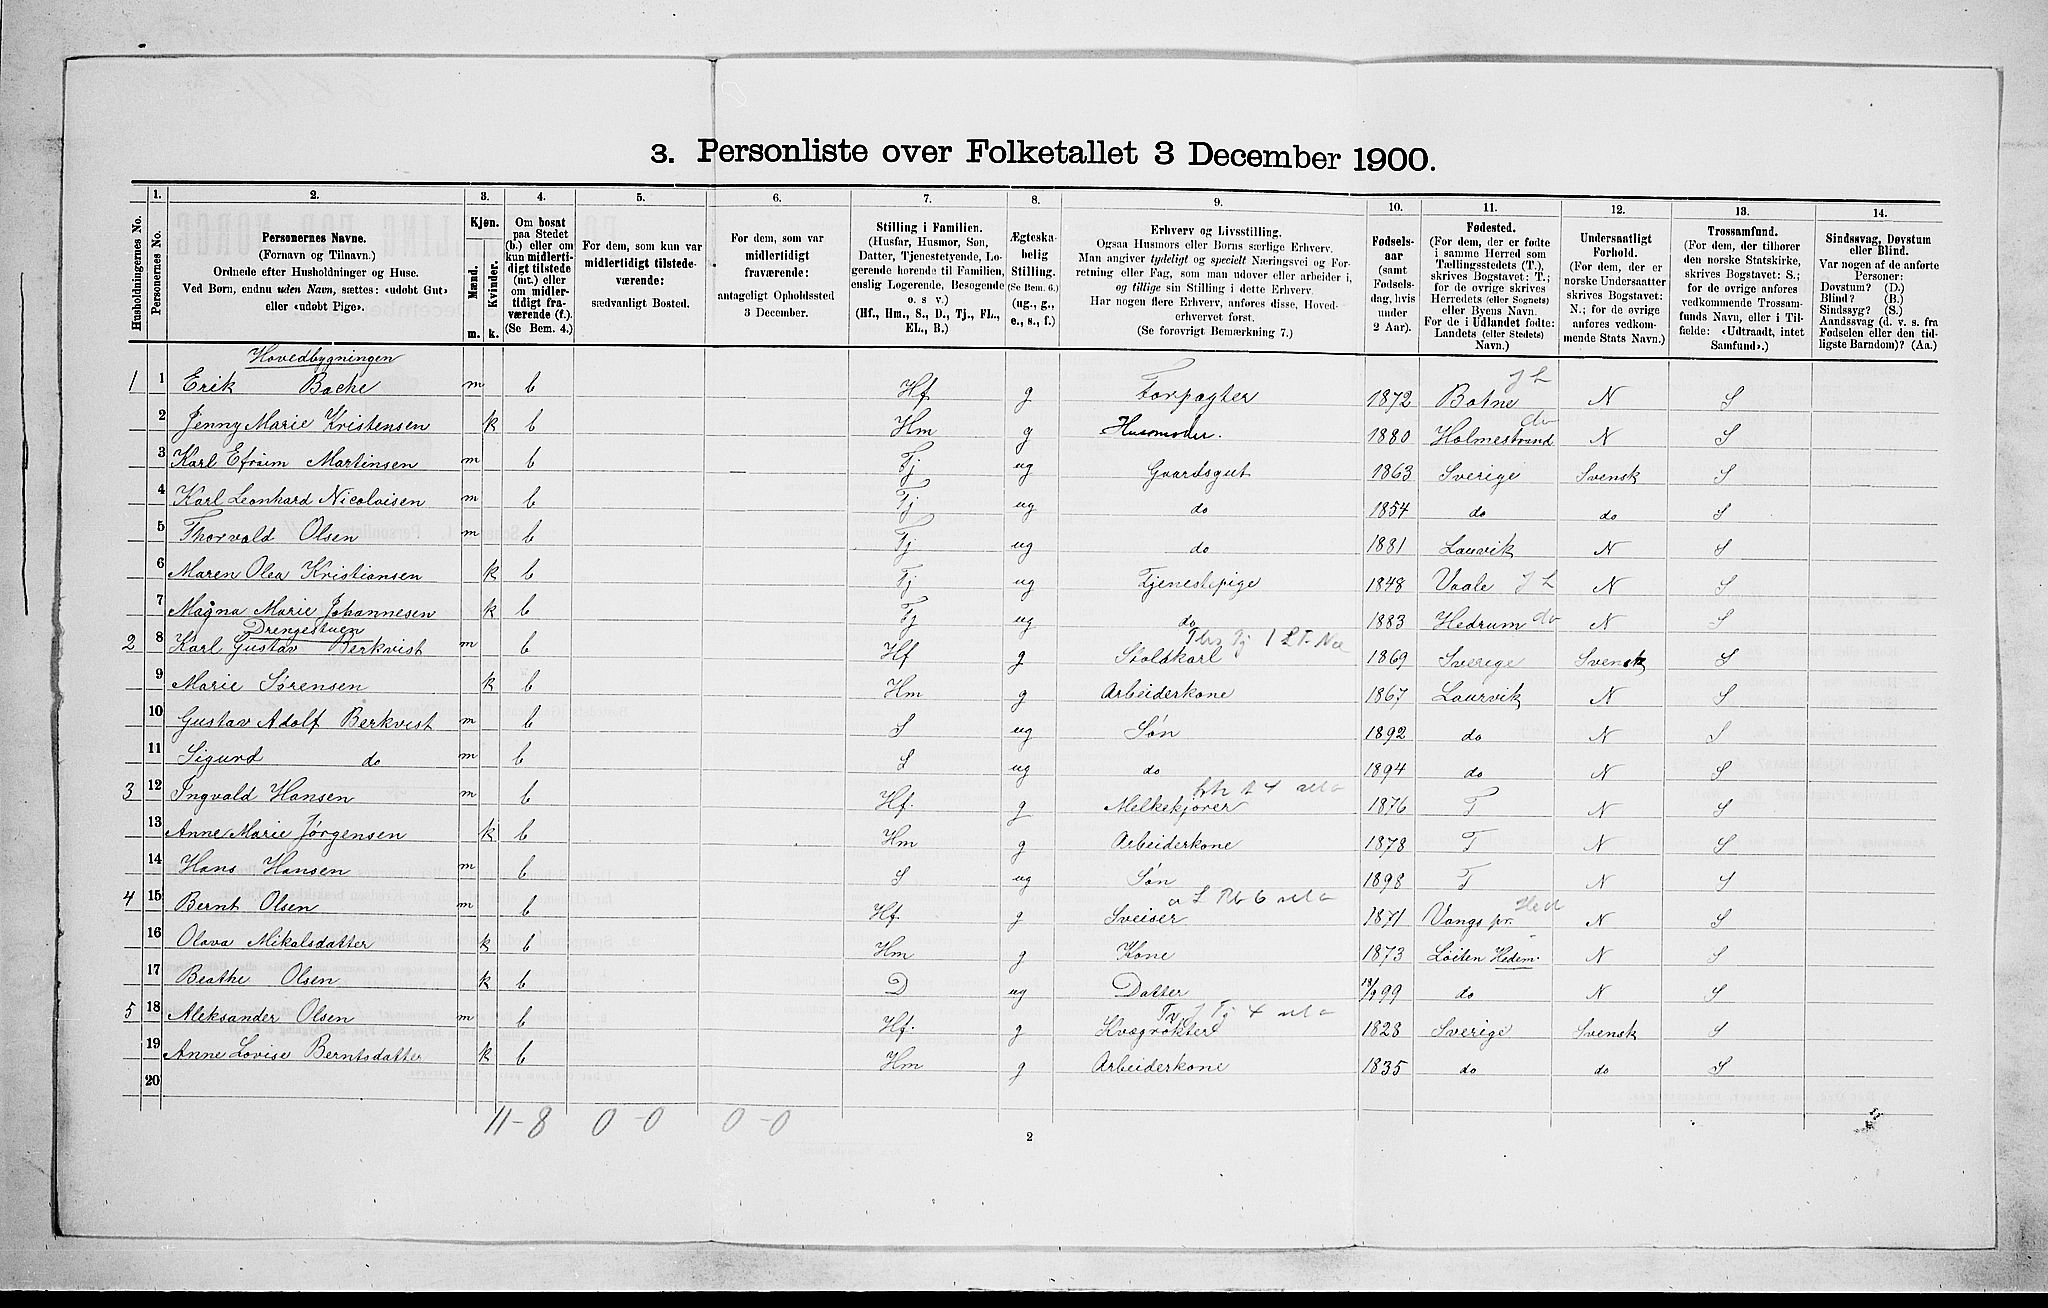 3. Personliste over Folketallet 3 December 1900.
1. 2. 3. 4. 5. 6. 7. 8. 9. 10. 11. 12. 13. 14.
Husholdningernes No.
Personernes No.
Personernes Navne.
(Fornavn og Tilnavn.)
Ordnede efter Husholdninger og Huse.
Ved Børn, endnu uden Navn, sættes: «udøbt Gut»
eller «udøbt Pige».
Kjøn.
Mænd.
Kvinder.
m. k.
Om bosat
paa Stedet
(b.) eller om
kun midlerti-
digt tilstede
(mt.) eller
om midler-
tidigt fra-
værende (f.).
(Se Bem. 4.)
For dem, som kun var
midlertidigt tilstede-
værende:
sædvanligt Bosted.
For dem, som var
midlertidigt
fraværende:
antageligt Opholdssted
3 December.
Stilling i Familien.
(Husfar, Husmor, Søn,
Datter, Tjenestetyende, Lo-
gerende hørende til Familien,
enslig Logerende, Besøgende
o. s. v.)
(Hf., Hm., S., D., Tj., FL.,
EL., B.)
Ægteska-
belig
Stilling.
(Se Bem. 6.)
(ug., g.,
e., s., f.)
Erhverv og Livsstilling.
Ogsaa Husmors eller Børns særlige Erhverv.
Man angiver tydeligt og specielt Næringsvei og For-
retning eller Fag, som man udøver eller arbeider i,
og tillige sin Stilling i dette Erhverv.
Har nogen flere Erhverv, anføres disse, Hoved-
erhvervet først.
(Se forøvrigt Bemærkning 7.)
Fødsels-
aar
(samt
Fødsels-
dag, hvis
under
2 Aar).
Fødested.
(For dem, der er fødte
i samme Herred som
Tællingsstedets (T.),
skrives Bogstavet: T.;
for de øvrige skrives
Herredets (eller Sognets)
eller Byens Navn.
For de i Udlandet fødte:
Landets (eller Stedets)
Navn.)
Undersaatligt
Forhold.
(For dem, der er
norske Undersaatter
skrives Bogstavet:
N.; for de øvrige
anføres vedkom-
mende Stats Navn.)
Trossamfund.
(For dem, der tilhører
den norske Statskirke,
skrives Bogstavet: S.;
for de øvrige anføres
vedkommende Trossam-
funds Navn, eller i Til-
fælde: «Udtraadt, intet
Samfund».)
Sindssvag, Døvstum
eller Blind.
Var nogen af de anførte
Personer:
Døvstum? (D.)
Blind? (B.)
Sindssyg? (S.)
Aandssvag (d. v. s. fra
Fødselen eller den tid-
ligste Barndom)? (Aa.)
Hovedbygningen
1 1 Erik Bache m b Hf g Forpagter 1872 Botne J L N S
2 Jenny Marie Kristensen k b Hm g Husmoder. 1880 Holmestrand do N S
3 Karl Efraim Martinsen m b Tj ug Gaardsgut 1863 Sverige Svensk S
4 Karl Leonhard Nicolaisen m b Tj ug do 1854 do do S
5 Thorvald Olsen m b Tj ug do 1881 Laurvik N S
6 Maren Olea Kristiansen k b Tj ug Tjenestepige 1848 Vaale J L N S
7 Magna Marie Johannesen k b Tj ug do 1883 Hedrum do N S
Drengestuen
2 8 Karl Gustav Berkvist m b Hf g Staldkarl 1869 Sverige Svensk S
9 Marie Sørensen k b Hm g Arbeiderkone 1867 Laurvik N S
10 Gustav Adolf Berkvist m b S ug Søn 1892 do N S
11 Sigurd do m b S ug do 1894 do N S
3 12 Ingvald Hansen m b Hf. g Melkekjører 1876 T N S
13 Anne Marie Jørgensen k b Hm g Arbeiderkone 1878 T N S
14 Hans Hansen m b S ug Søn 1898 T N S
4 15 Bernt Olsen m b Hf. g Sveiser 1871 Vangs pr. Hed N S
16 Olava Mikalsdatter k b Hm g Kone 1873 Løiten Hedem. N S
17 Beathe Olsen k b D ug Datter 99 do N S
5 18 Aleksander Olsen m b Hf. g Kvægrøkter 1828 Sverige Svensk S
19 Anne Lovise Berntsdatter k b Hm g Arbeiderkone 1835 do do S
20
11-8 0-0 0-0
2